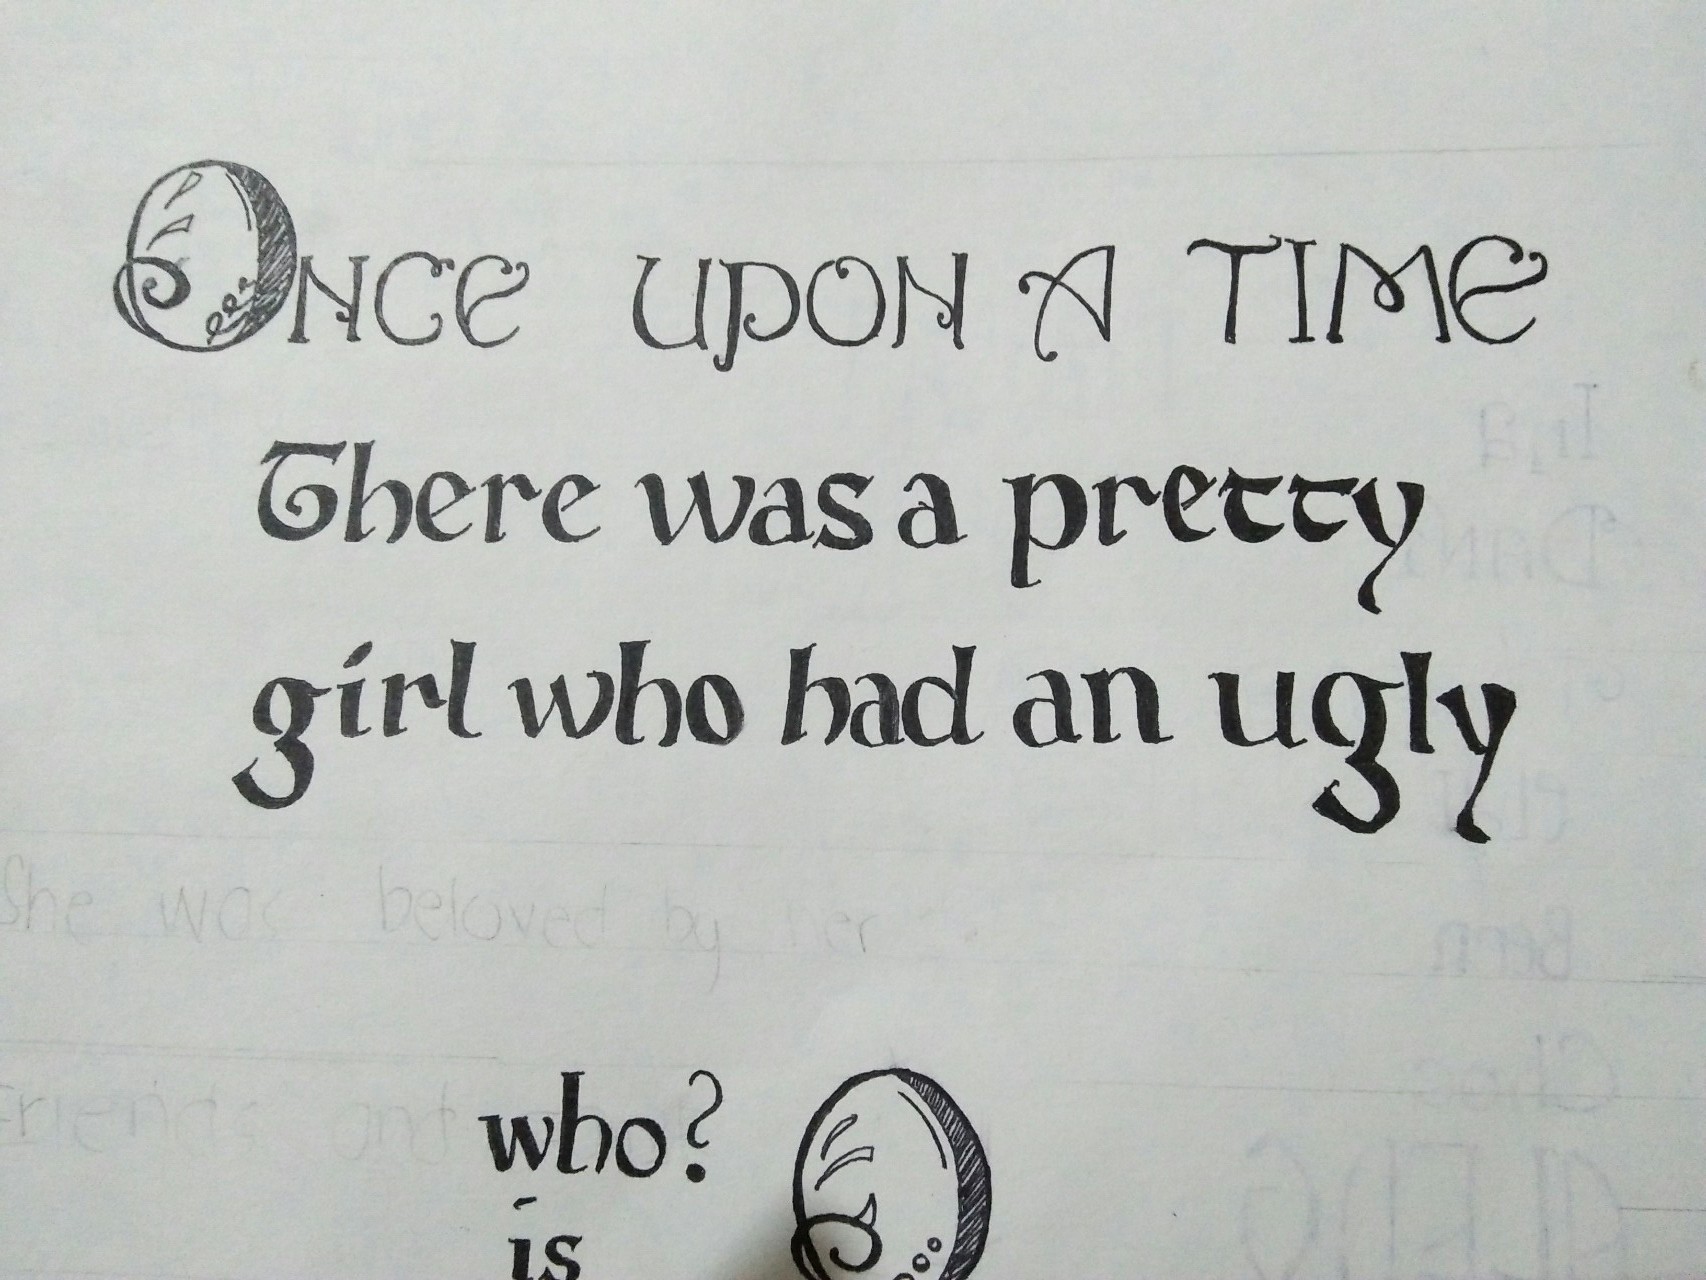 Once upon a time
There was a pretty
girl who had an ugly
She was beloved by her
Friends and
who?
is